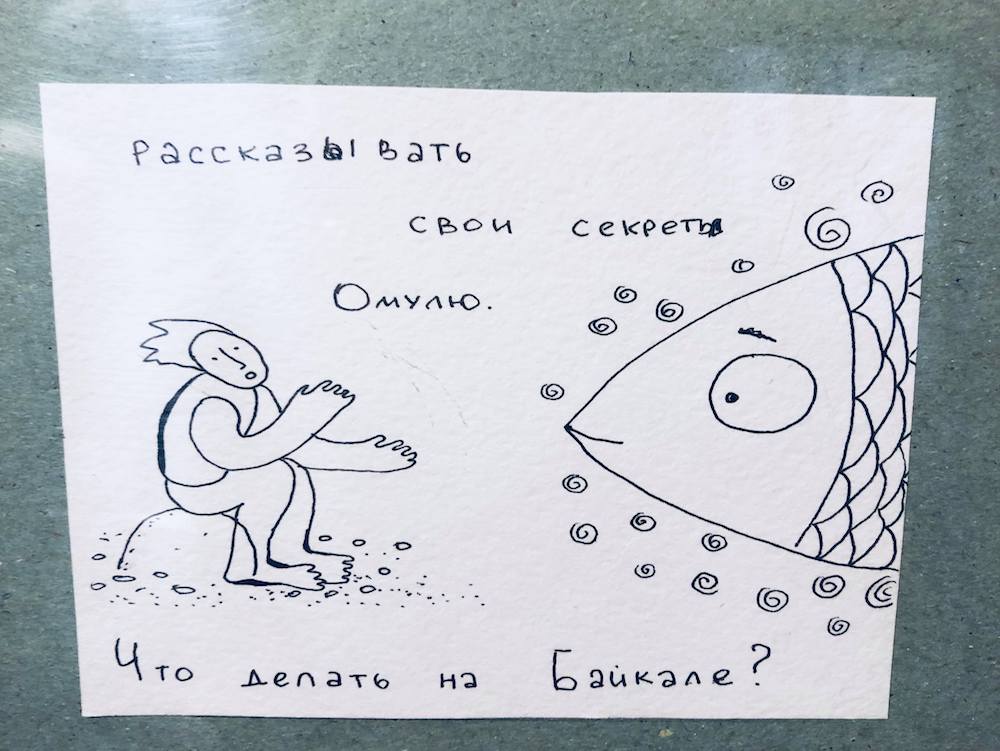 Рассказывать
свои секреты
Омулю.
Что делать на Байкале?